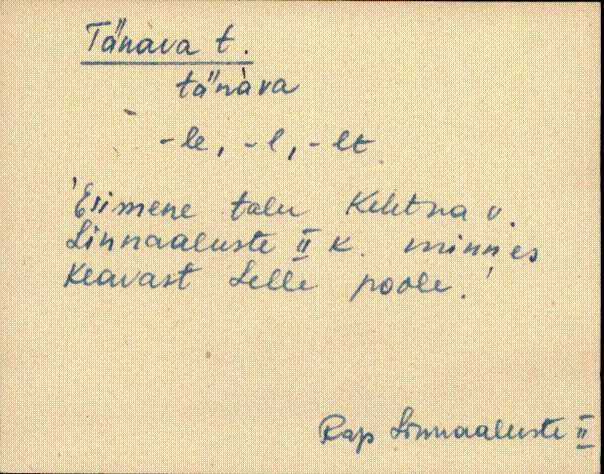 Tänava t.
tänàva
-le, -l, -lt
'Esimene talu Kehtna v.
Linnaaluste II k. minnes
Keavast Lelle poole.'
Rap Linnaaluste II